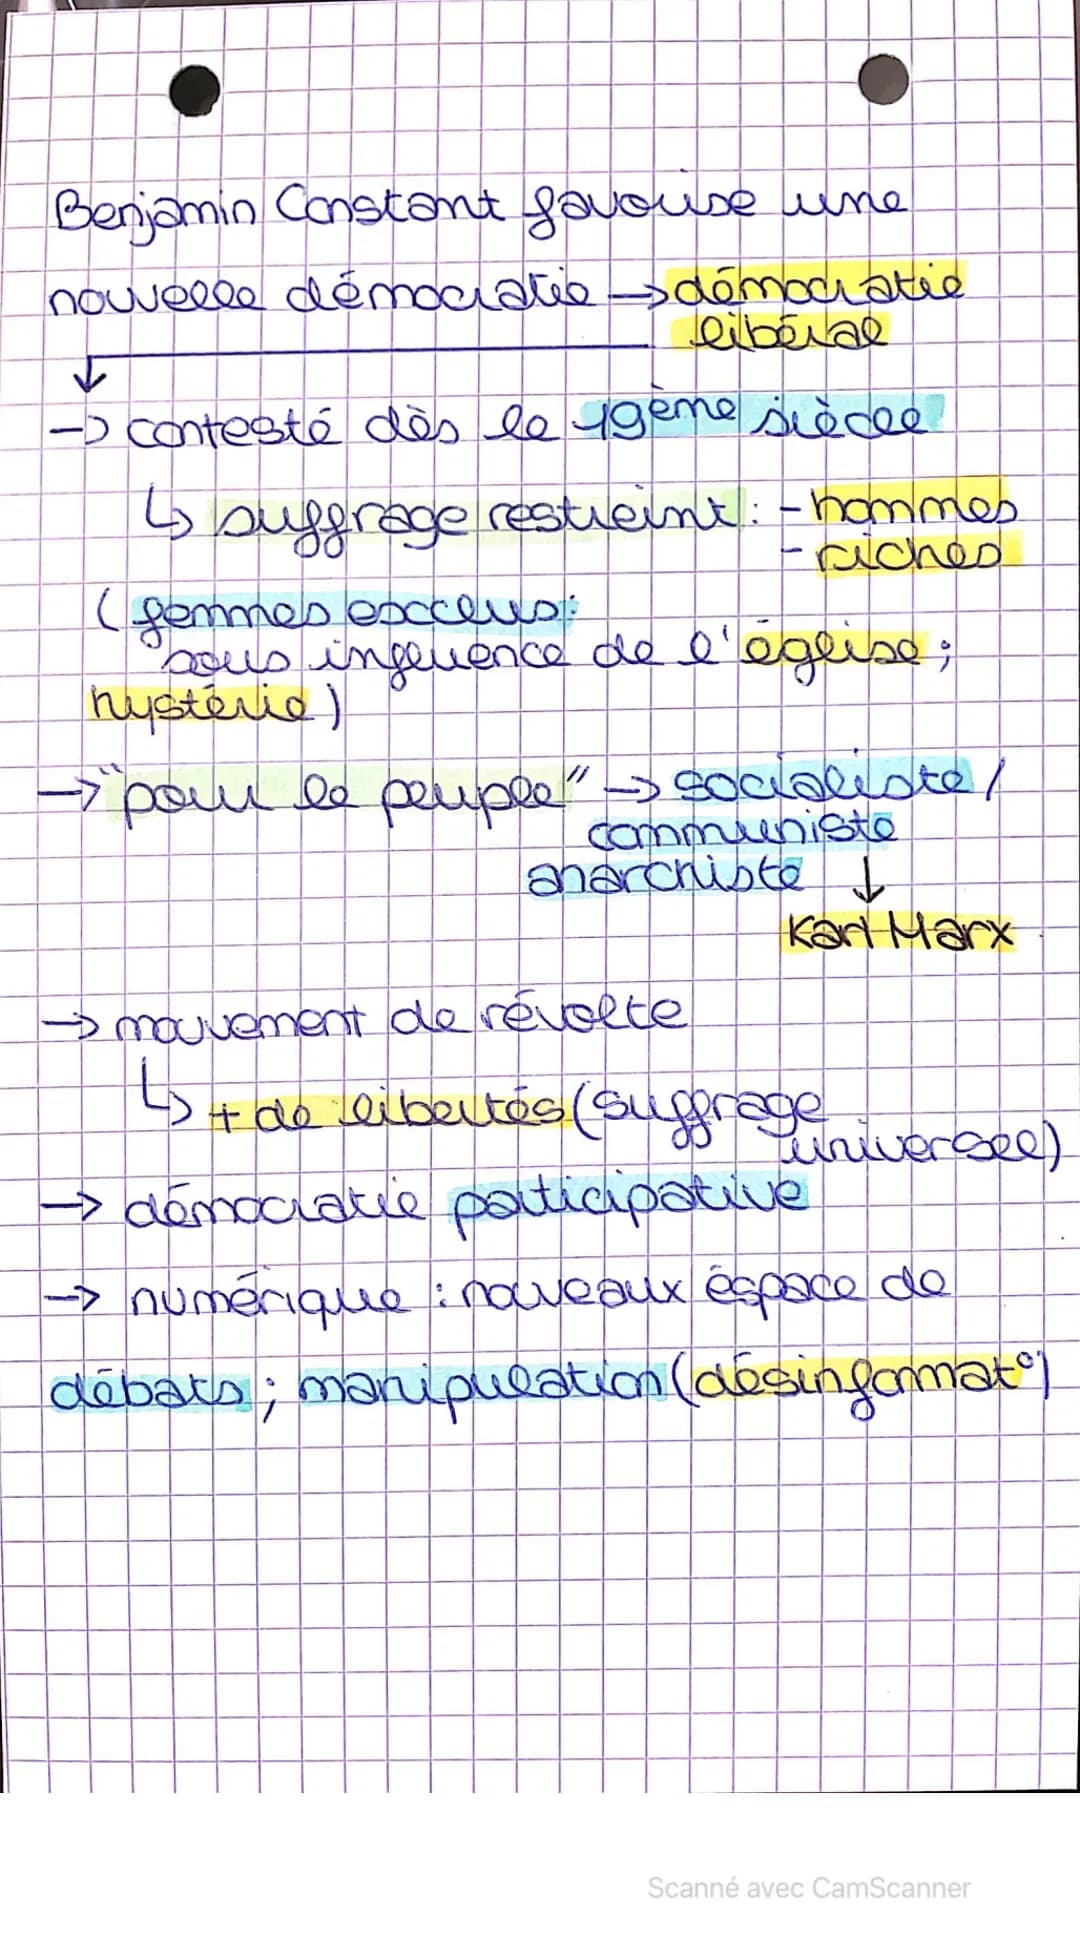 Benjamin Constant favorise une
nouvelle démocratie → démocratie
libéral
→ contesté dès le 19ème siècle
↳ suffrage restreint : - hommes
- riches
(femmes exclus :
sous influence de l'église ;
hystérie)
→ "pour le peuple" → socialiste /
communiste
anarchiste ↓
Karl Marx
→ mouvement de révolte
↳ + de libertés (suffrage
universel)
→ démocratie participative
→ numérique : nouveaux éspace de
débats ; manipulation (désinformat°)
Scanné avec CamScanner